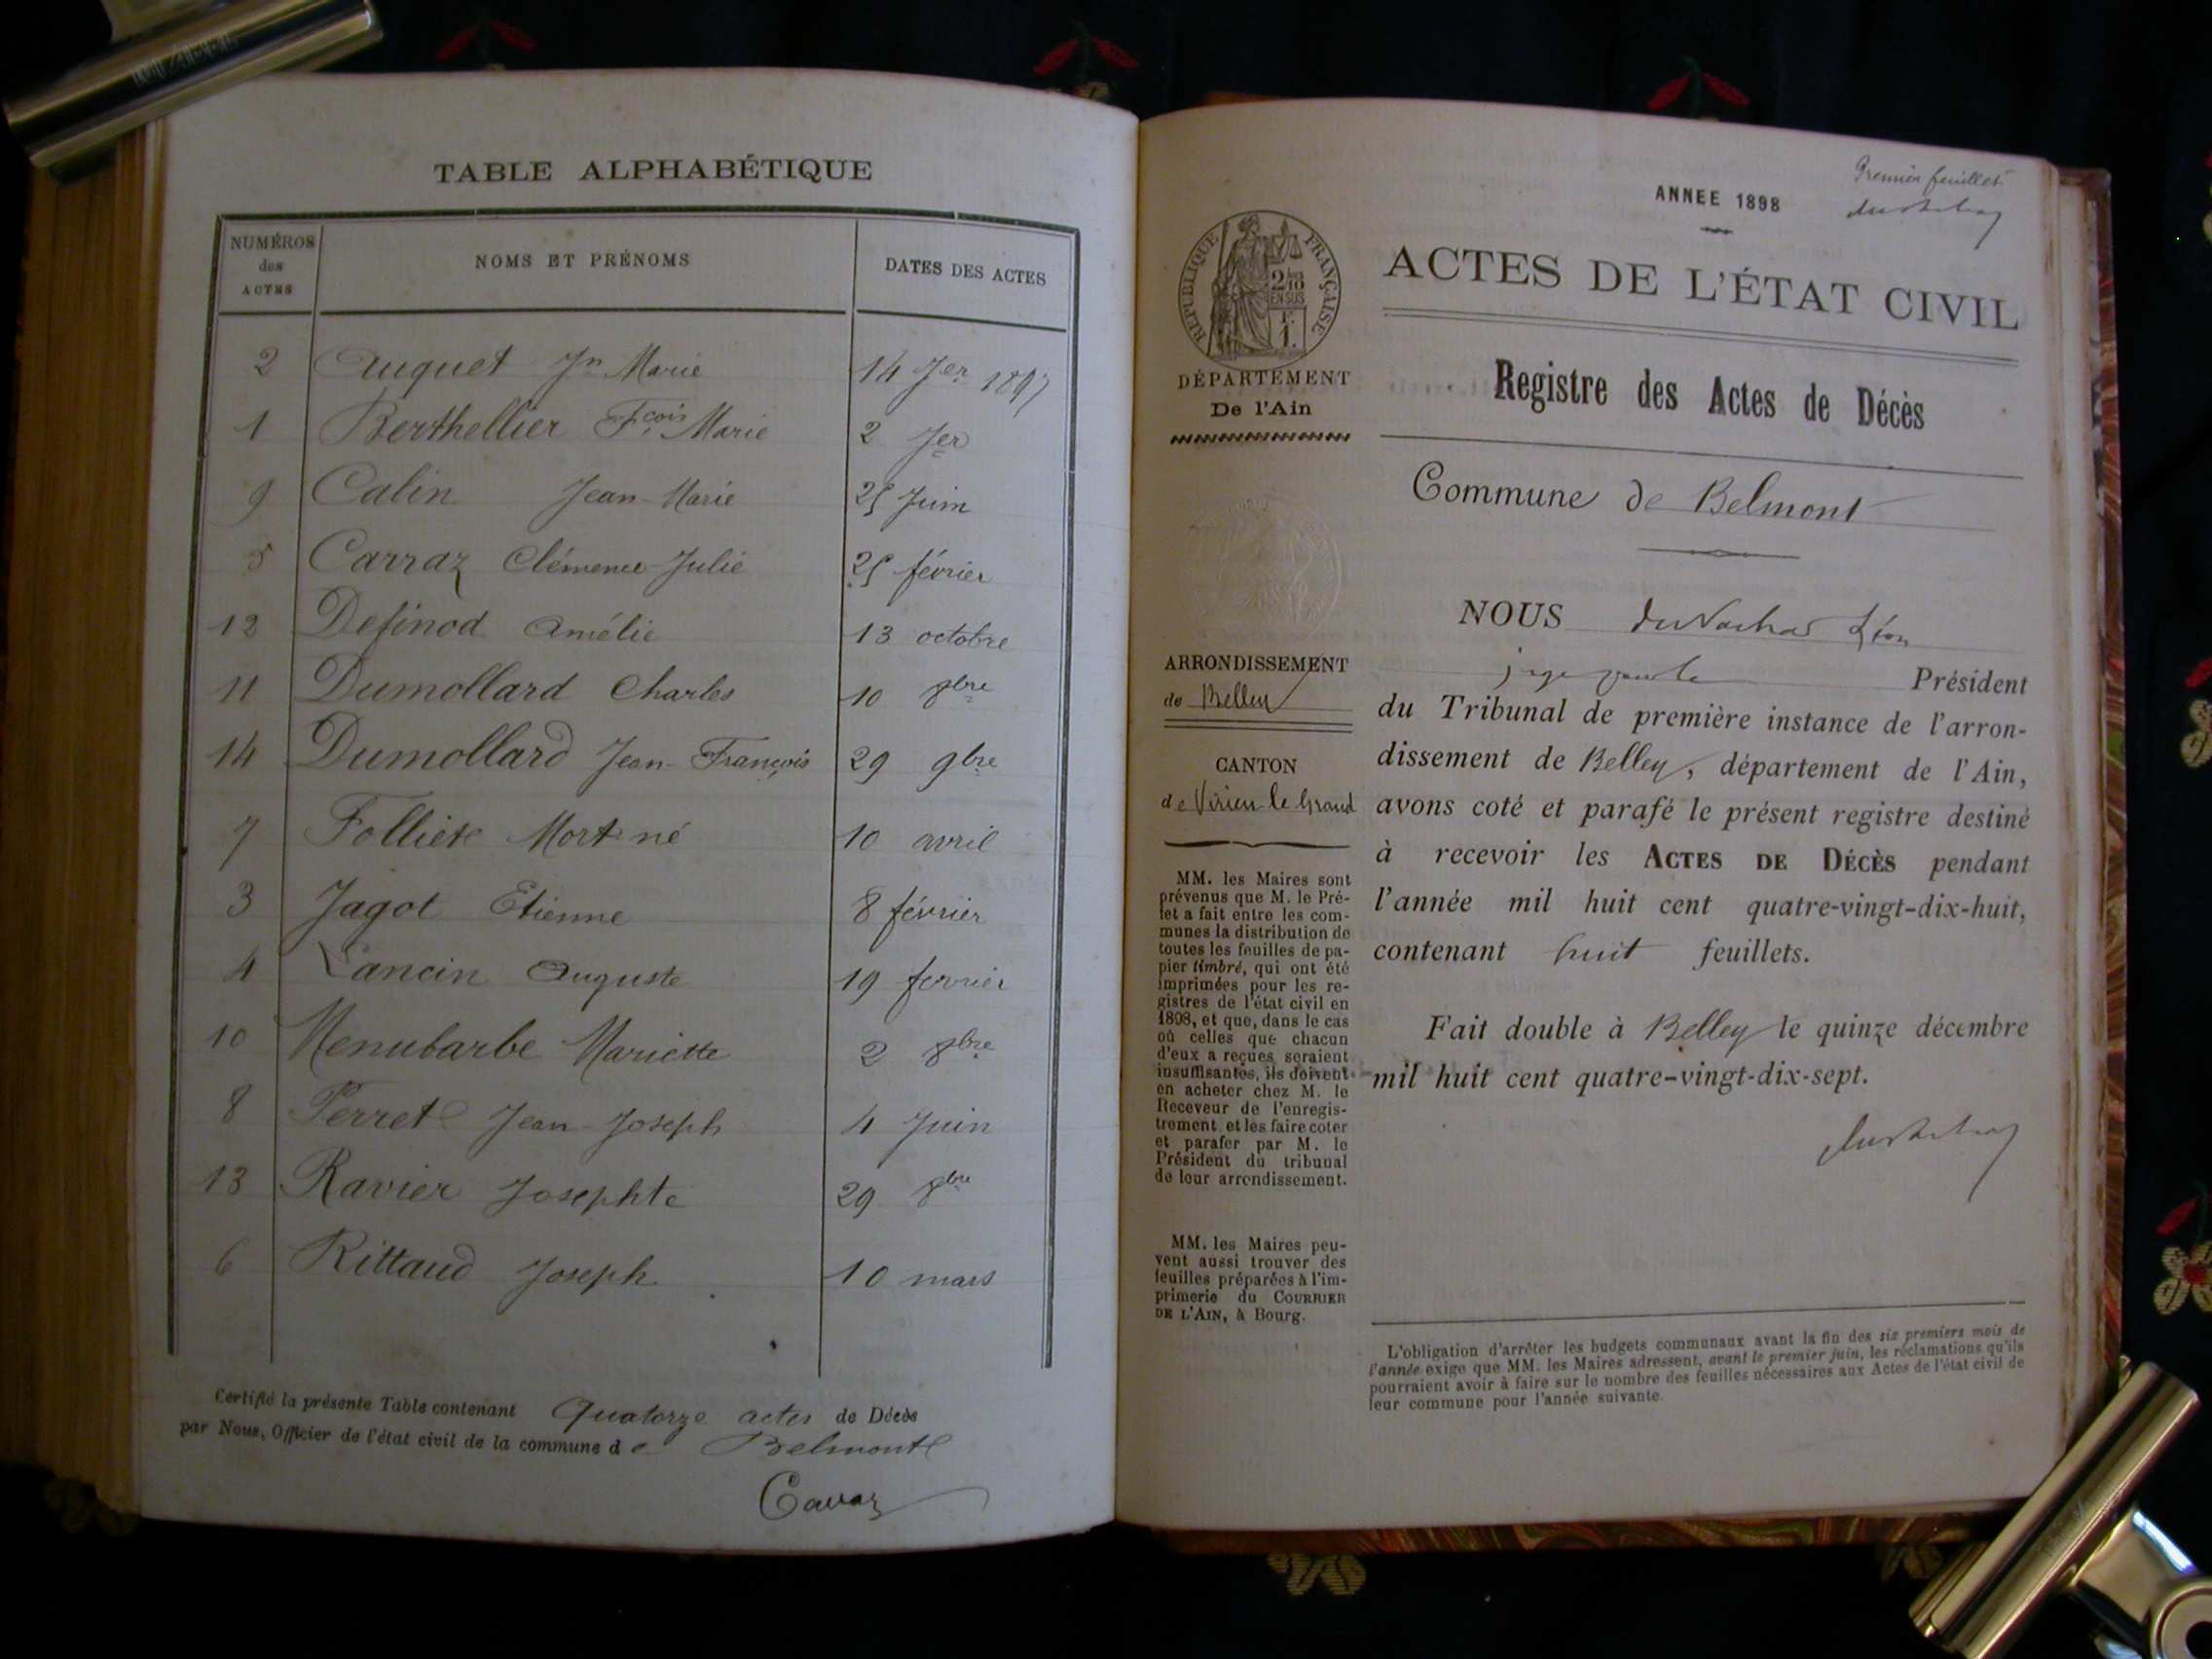 TABLE ALPHABÉTIQUE
NUMÉROS des ACTES NOMS ET PRÉNOMS DATES DES ACTES
2 Auquet Jn Marie 14 Jer 1897
1 Berthellier Fçois Marie 2 Jer
9 Calin Jean-Marie 25 Juin
5 Carraz Clémence Julie 25 février
12 Definod Amélie 13 octobre
11 Dumollard Charles 10 8bre
14 Dumollard Jean-François 29 9bre
7 Folliet Mort né 10 avril
3 Jagot Etienne 8 février
4 Lancin Auguste 19 fevrier
10 Menubarbe Mariette 2 8bre
8 Perret Jean-Joseph 4 Juin
13 Ravier Josephte 29 8bre
6 Rittaud Joseph 10 mars
Certifié la présente Table contenant Quatorze actes de Décès
par Nous, Officier de l'état civil de la commune de Belmont
Premier feuillet
ANNEE 1898
ACTES DE L'ÉTAT CIVIL
RÉPUBLIQUE FRANÇAISE
2/10 EN SUS
1.
DÉPARTEMENT
De l'Ain
Registre des Actes de Décès
Commune de Belmont
ARRONDISSEMENT
de Belley
CANTON
de Virieu-le-Grand
MM. les Maires sont
prévenus que M. le Pré-
fet a fait entre les com-
munes la distribution de
toutes les feuilles de pa-
pier timbré, qui ont été
imprimées pour les re-
gistres de l'état civil en
1898, et que, dans le cas
où celles que chacun
d'eux a reçues seraient
insuffisantes, ils doivent
en acheter chez M. le
Receveur de l'enregis-
trement et les faire coter
et parafer par M. le
Président du tribunal
de leur arrondissement.
MM. les Maires peu-
vent aussi trouver des
feuilles préparées à l'im-
primerie du COURRIER
DE L'AIN, à Bourg.
NOUS Léon
Président
du Tribunal de première instance de l'arron-
dissement de Belley, département de l'Ain,
avons coté et parafé le présent registre destiné
à recevoir les ACTES DE DÉCÈS pendant
l'année mil huit cent quatre-vingt-dix-huit,
contenant huit feuillets.
Fait double à Belley le quinze décembre
mil huit cent quatre-vingt-dix-sept.
L'obligation d'arrêter les budgets communaux avant la fin des six premiers mois de
l'année exige que MM. les Maires adressent, avant le premier juin, les réclamations qu'ils
pourraient avoir à faire sur le nombre des feuilles nécessaires aux Actes de l'état civil de
leur commune pour l'année suivante.